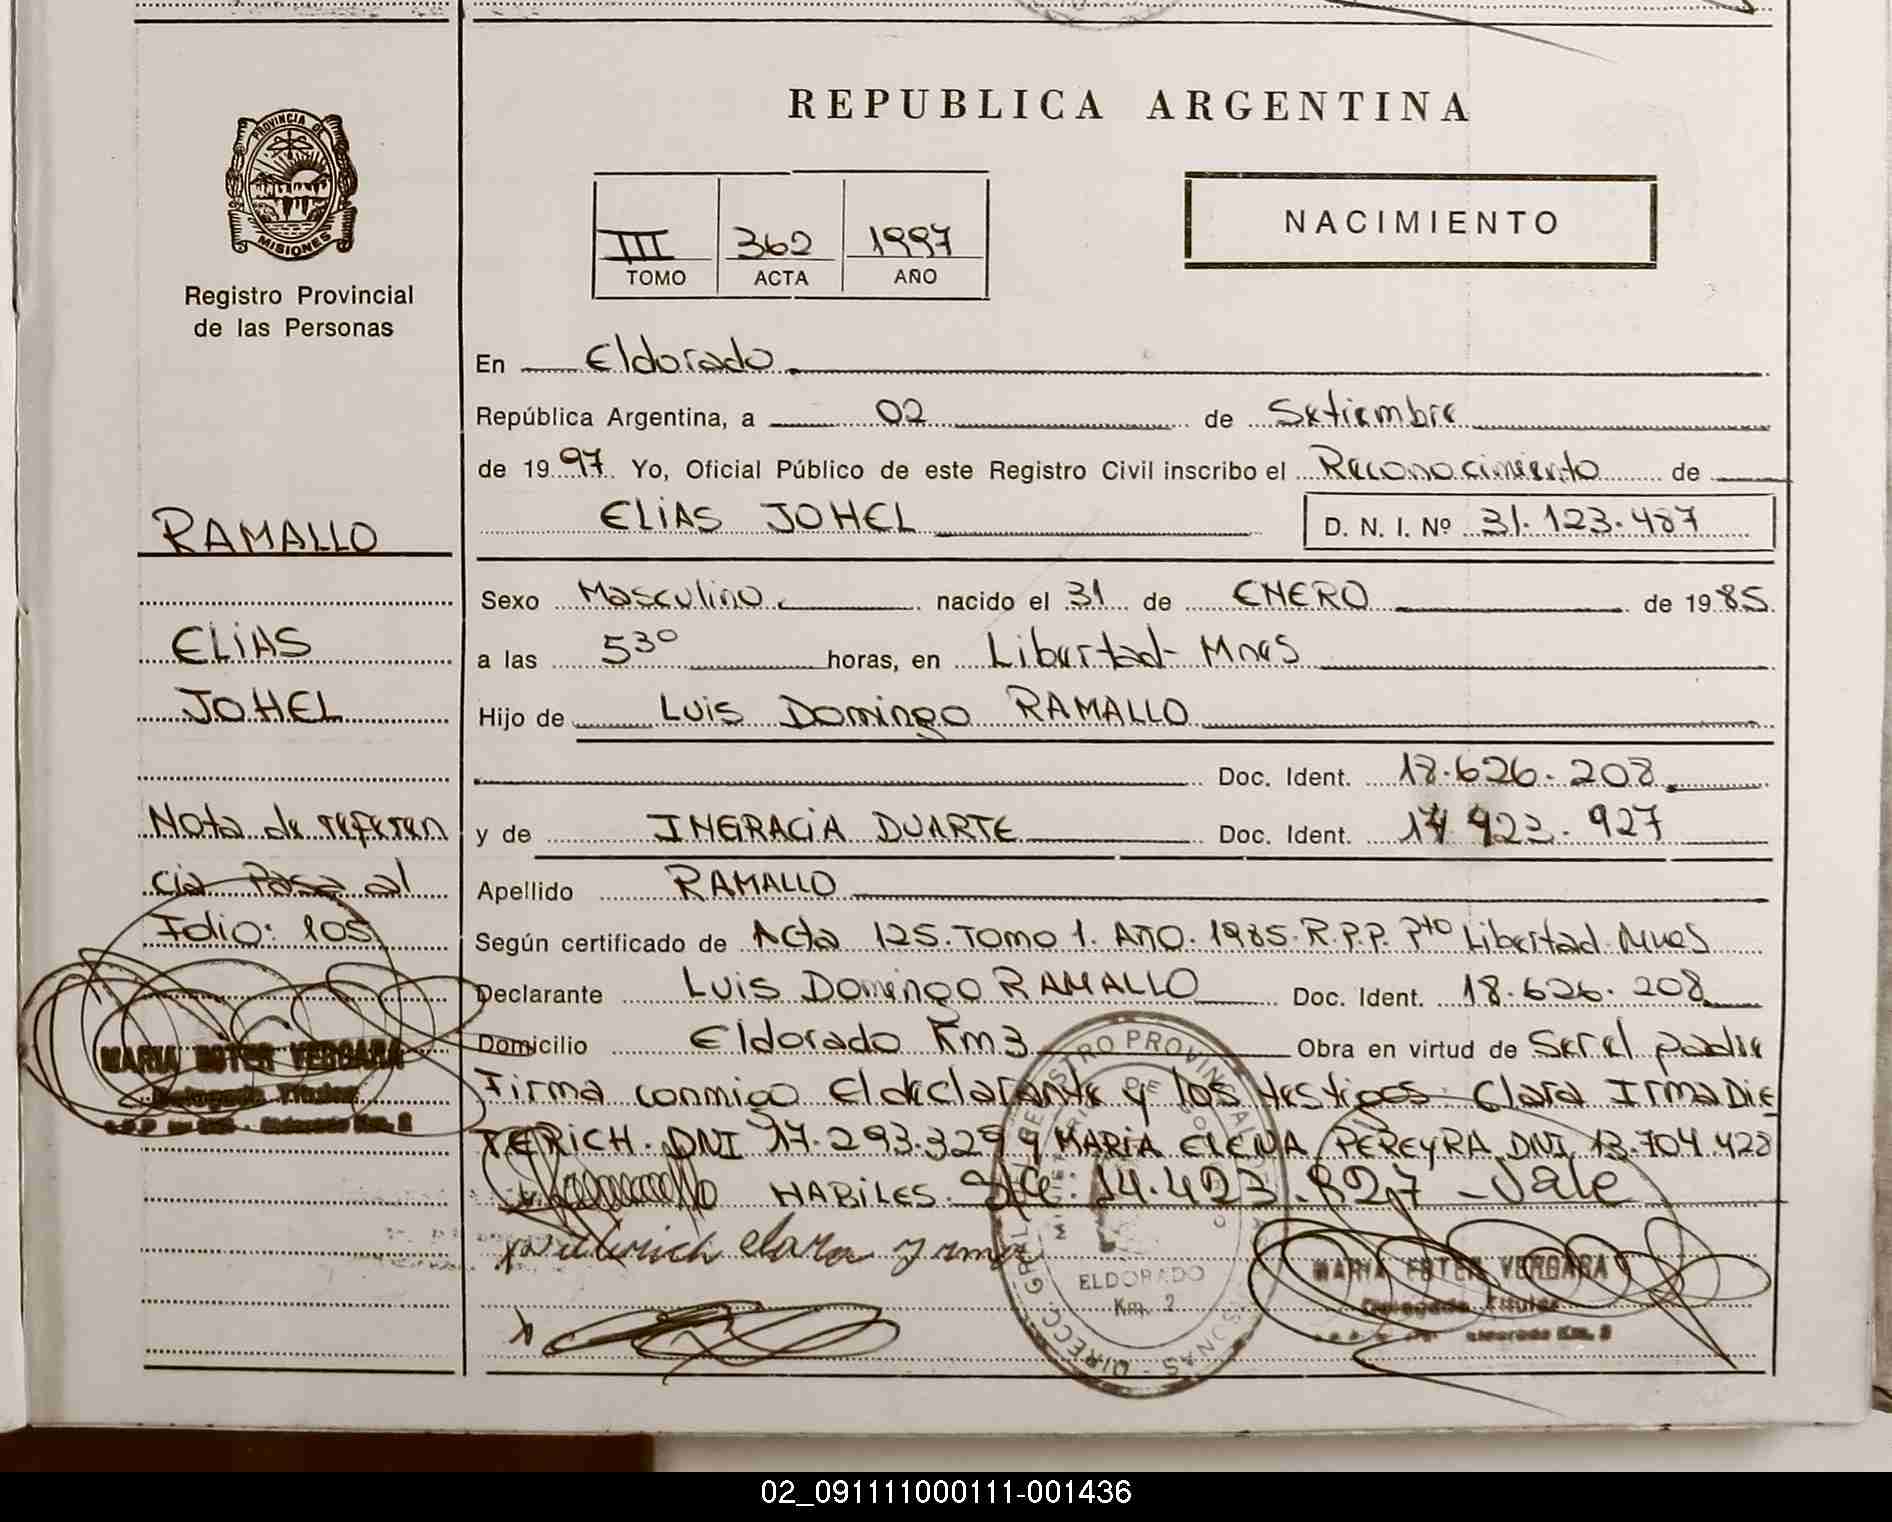 REPUBLICA ARGENTINA
PROVINCIA DE
MISIONES
Registro Provincial
de las Personas
III 362 1997
TOMO ACTA AÑO
NACIMIENTO
En Eldorado
República Argentina, a 02 de Setiembre
de 1997 Yo, Oficial Público de este Registro Civil inscribo el Reconocimiento de
ELIAS JOHEL D. N. I. Nº 31.123.487
RAMALLO
ELIAS
JOHEL
Nota de referen
cia Pasa al
Folio: 105
MARIA ESTER VERGARA
Delegada Titular
Eldorado Km. 2
Sexo Masculino nacido el 31 de ENERO de 1985
a las 5 30 horas, en Libertad- Mnes
Hijo de Luis Domingo RAMALLO
Doc. Ident. 18.626.208
y de INGRACIA DUARTE Doc. Ident. 923.927
Apellido RAMALLO
Según certificado de Acta 125. Tomo 1. AÑO. 1985. R.P.P. Pto Libertad. Mnes
Declarante Luis Domingo RAMALLO Doc. Ident. 18.626.208
Domicilio Eldorado Km 3 Obra en virtud de Ser el padre
Firma conmigo El declarante y los testigos: Clara Irma Die
TERICH. DNI 17.293.329 y MARIA ELENA PEREYRA DNI 13.704.428
HABILES. 14.423.827 - Vale
Dieterich clara yrma
REGISTRO PROVINCIAL DE
ELDORADO
Km. 2
MARIA ESTER VERGARA
Delegada Titular
Eldorado Km. 2
02_091111000111-001436